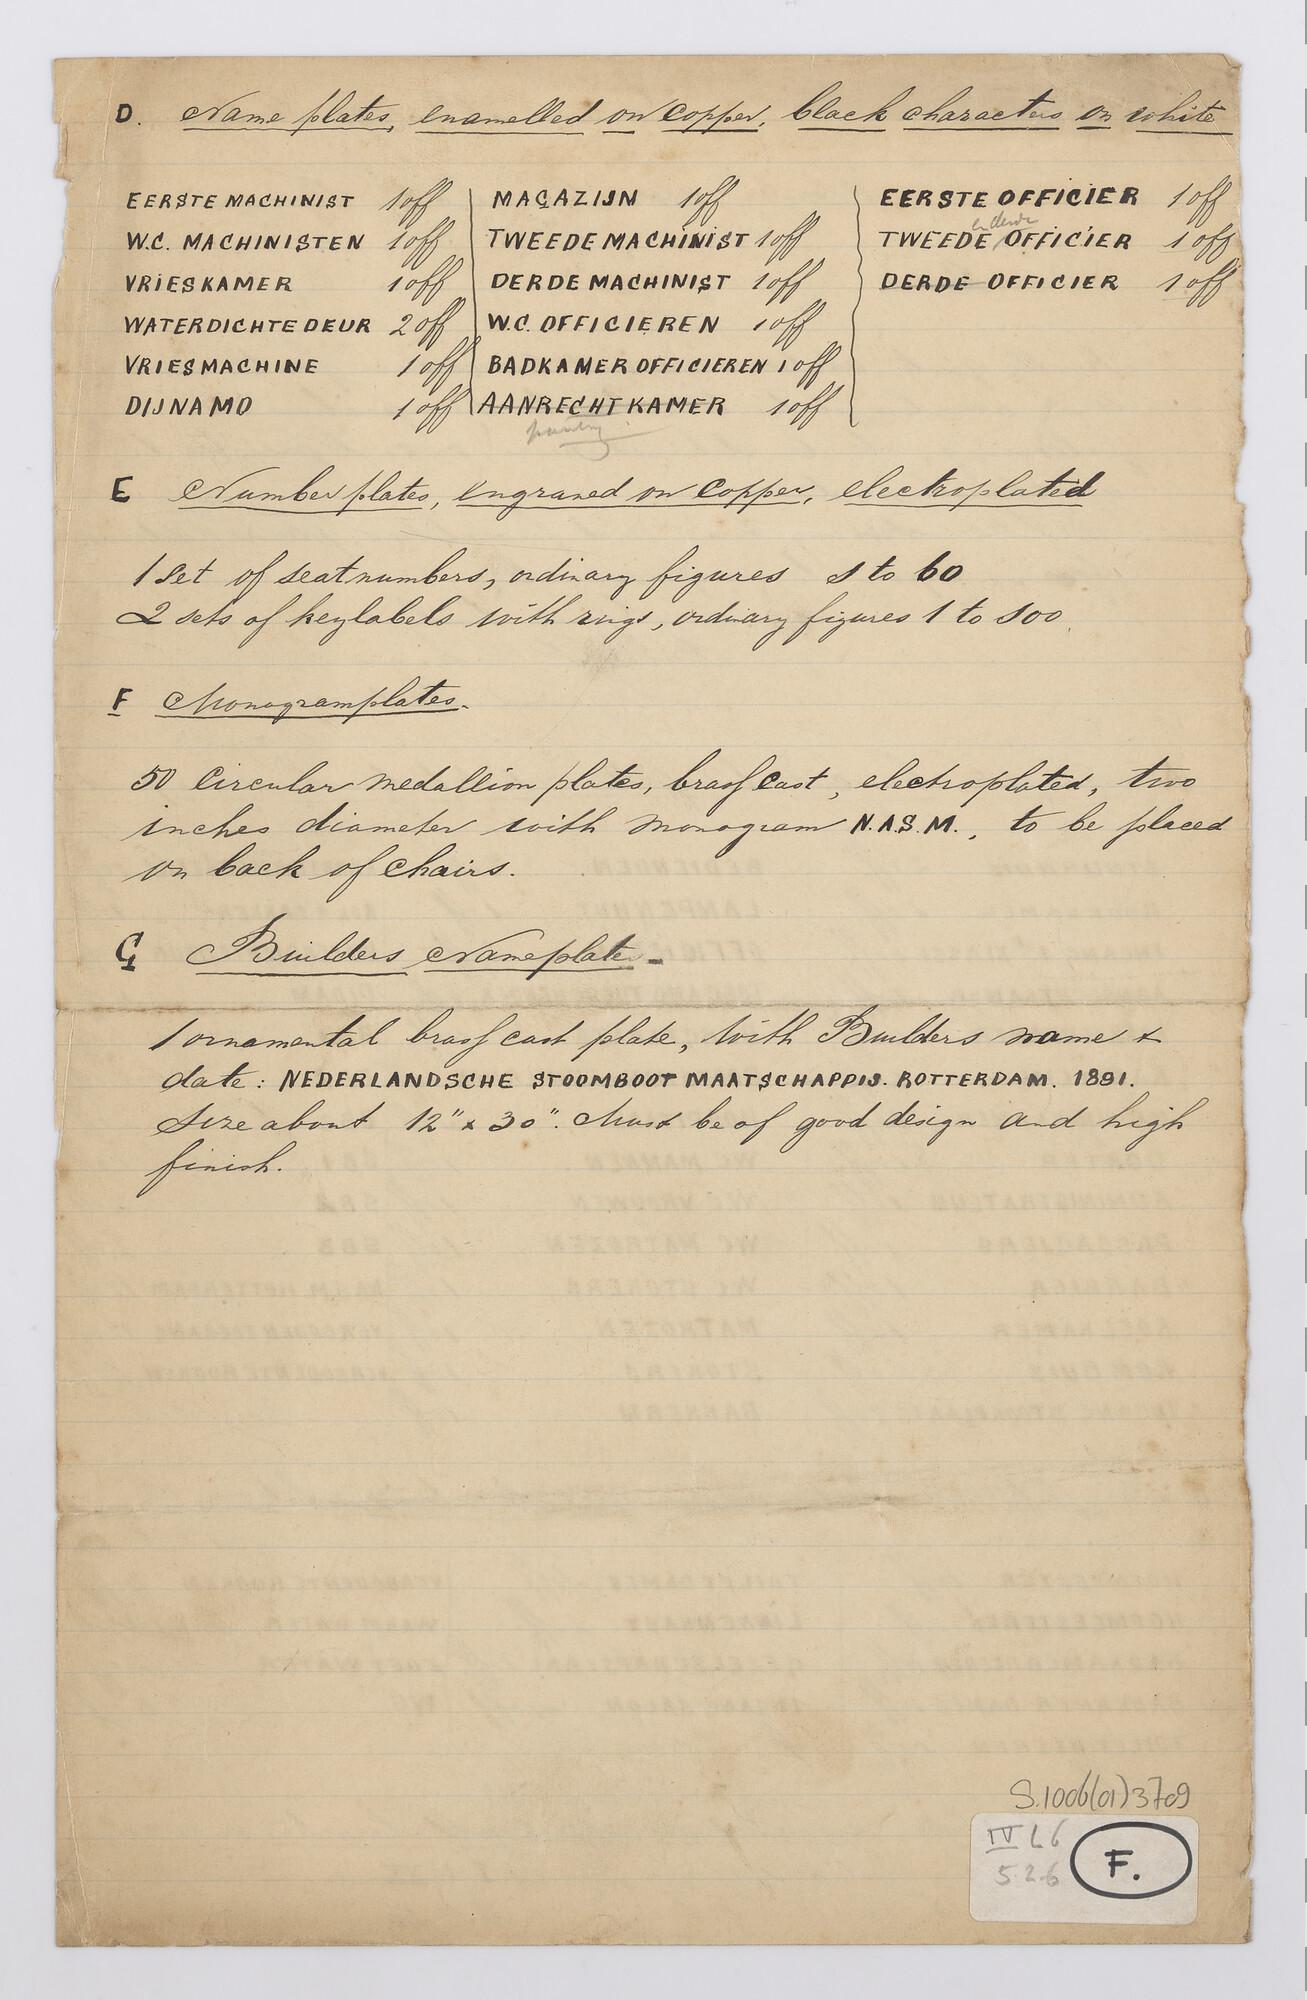 D. Name plates, enamelled on copper, black characters on white
EERSTE MACHINIST 1 off
W.C. MACHINISTEN 1 off
VRIESKAMER 1 off
WATERDICHTE DEUR 2 off
VRIESMACHINE 1 off
DIJNAMO 1 off
MAGAZIJN 1 off
TWEEDE MACHINIST 1 off
DERDE MACHINIST 1 off
W.C. OFFICIEREN 1 off
BADKAMER OFFICIEREN 1 off
AANRECHTKAMER 1 off
pantry
EERSTE OFFICIER 1 off
en derde
TWEEDE OFFICIER 1 off
DERDE OFFICIER 1 off
E Number plates, engraved on copper, electroplated
1 Set of seatnumbers, ordinary figures 1 to 60
2 sets of keylabels with rings, ordinary figures 1 to 100.
F Monogramplates.
50 Circular medallion plates, brass cast, electroplated, two
inches diameter with monogram N.A.S.M., to be placed
on back of chairs.
G Builders Nameplate.
1 ornamental brass cast plate, with Builders name &
date: NEDERLANDSCHE STOOMBOOT MAATSCHAPPIJ. ROTTERDAM. 1891.
Size about 12" x 30". Must be of good design and high
finish.
S.1006(01)3709
IV L6
5.2.6
F.